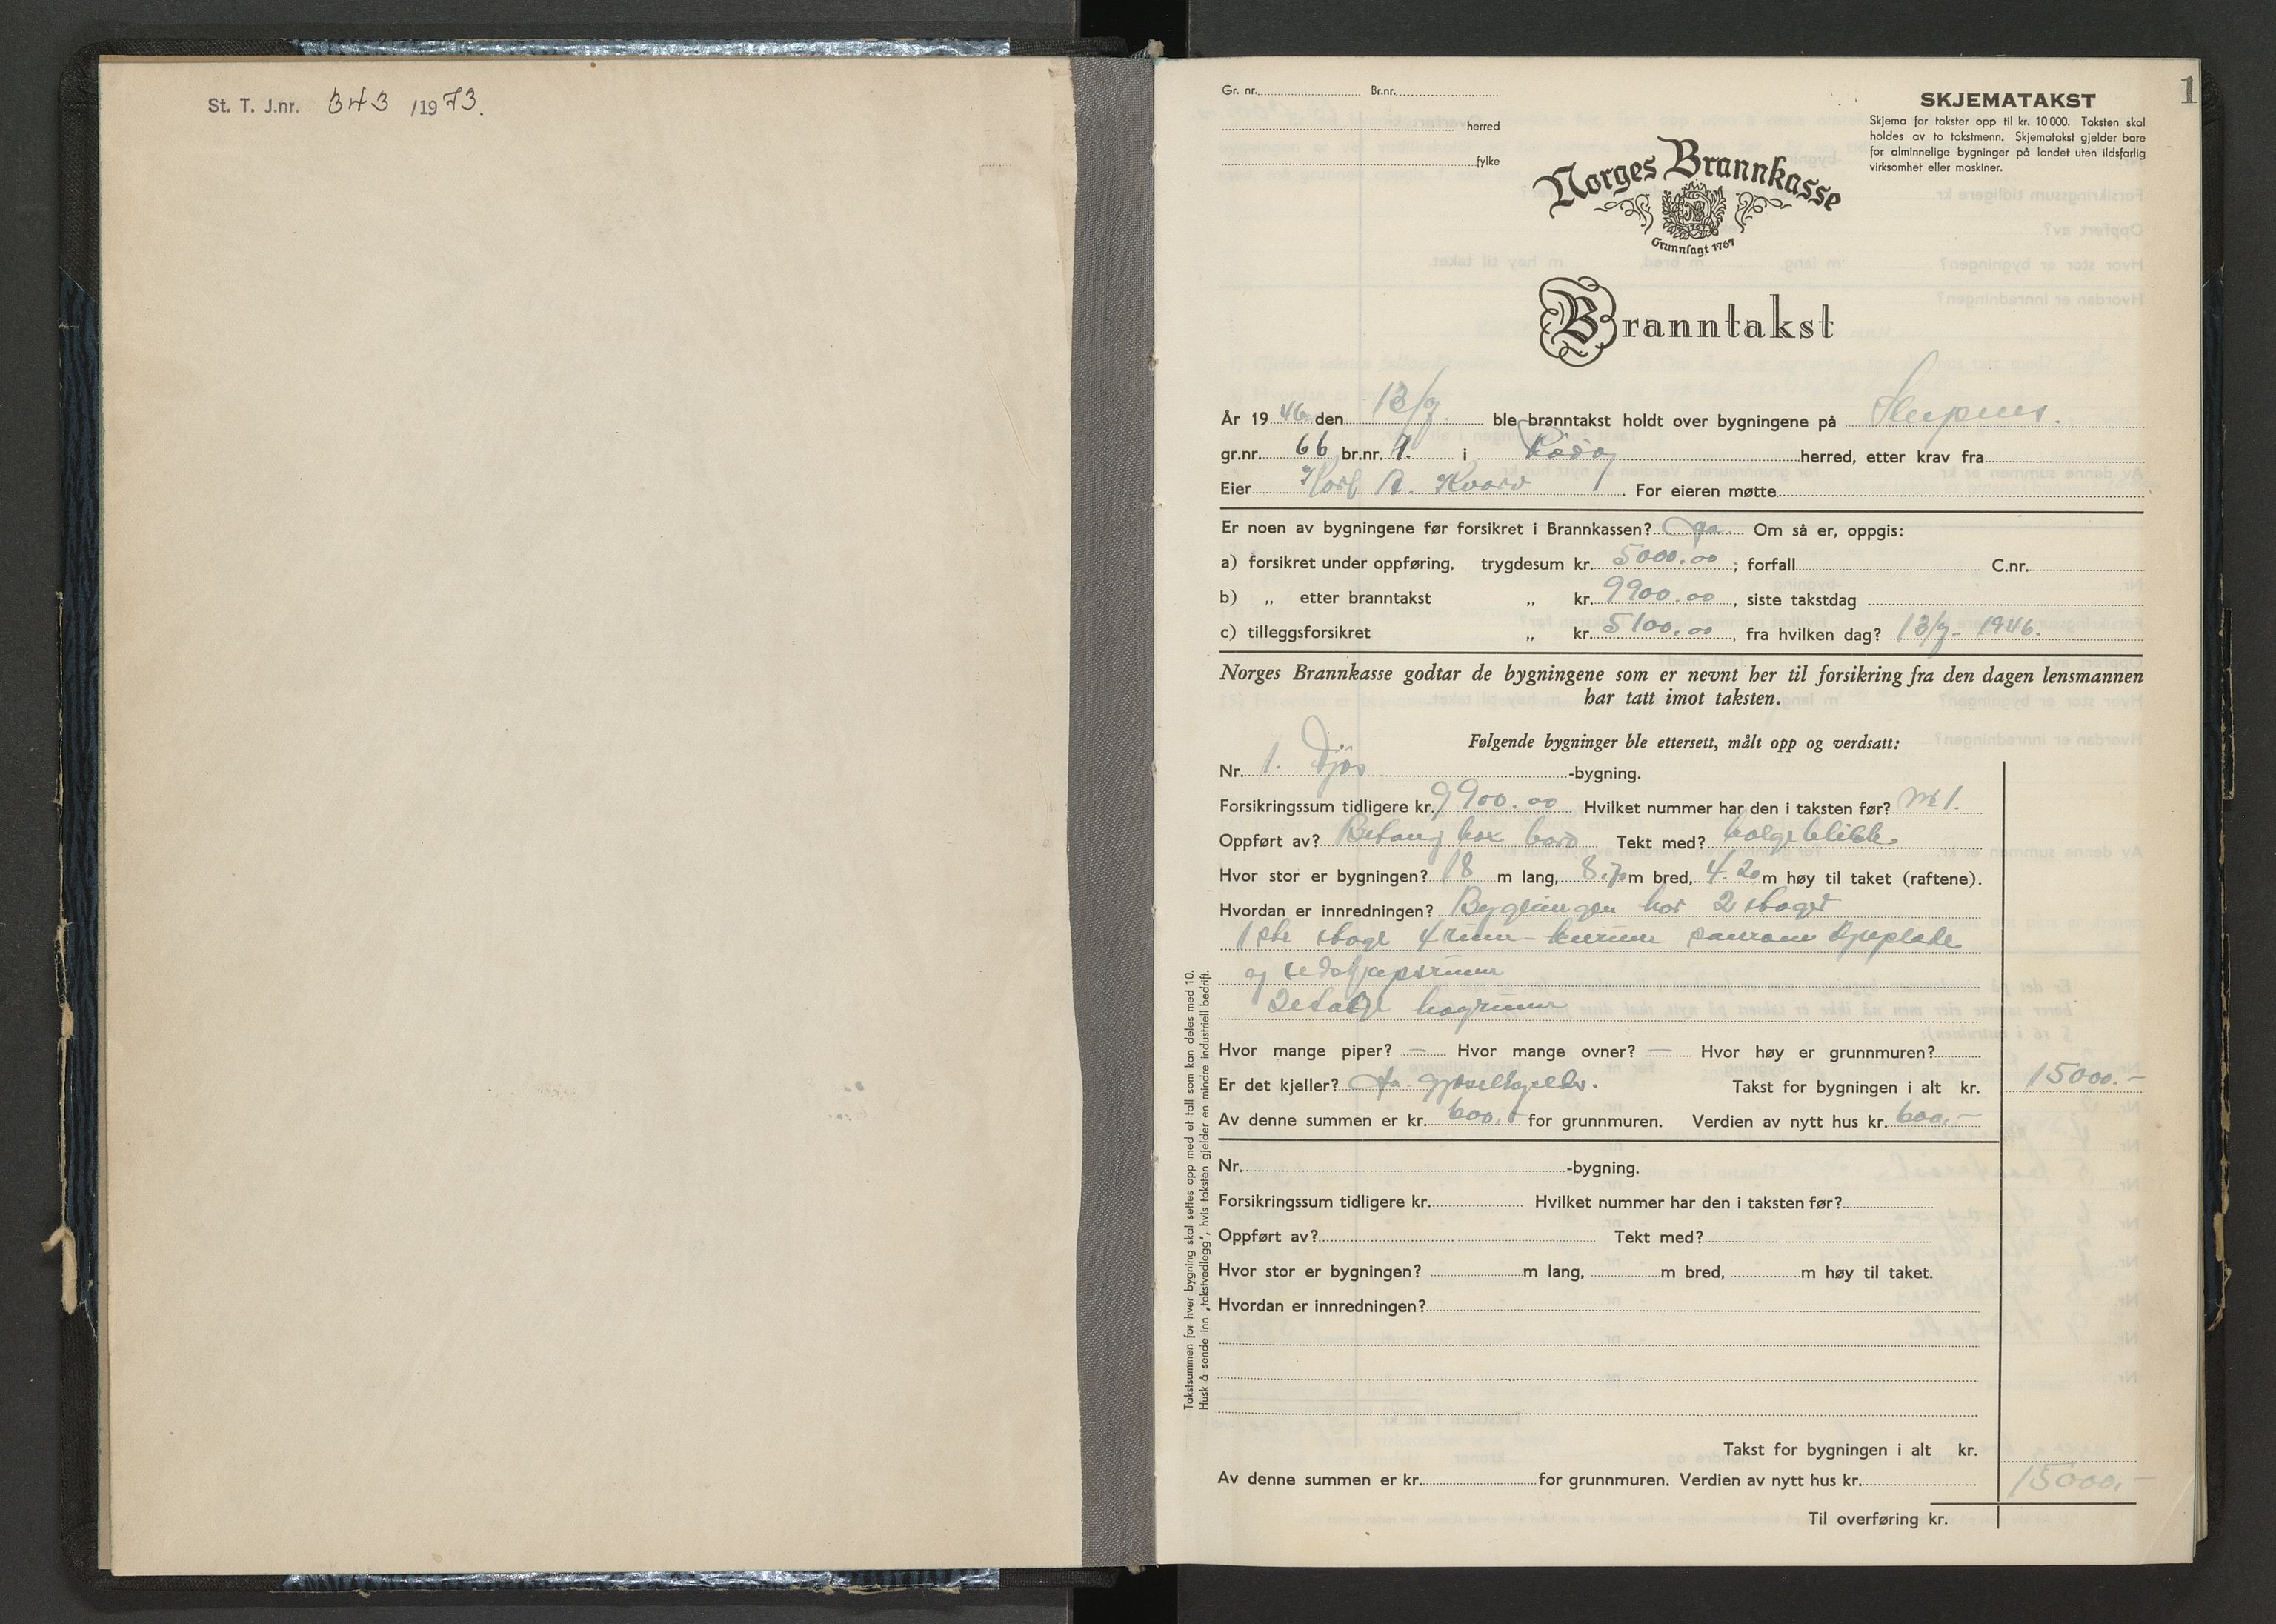 St. T. J.nr. 343 /1973.
1
Gr. nr. Br.nr.
herred
fylke
SKJEMATAKST
Skjema for takster opp til kr. 10 000. Taksten skal
holdes av to takstmenn. Skjematakst gjelder bare
for alminnelige bygninger på landet uten ildsfarlig
virksomhet eller maskiner.
Norges Brannkasse
Grunnlagt 1767
Branntakst
År 19 46 den 13/7. ble branntakst holdt over bygningene på
gr.nr. 66 br.nr. i Rödöy herred, etter krav fra
Eier A. For eieren møtte
Er noen av bygningene før forsikret i Brannkassen? Ja. Om så er, oppgis:
a) forsikret under oppføring, trygdesum kr. 5000.00 ; forfall C.nr.
b) „ etter branntakst „ kr. 9900.00 , siste takstdag
c) tilleggsforsikret „ kr. 5100.00 , fra hvilken dag? 13/7- 1946.
Norges Brannkasse godtar de bygningene som er nevnt her til forsikring fra den dagen lensmannen
har tatt imot taksten.
Følgende bygninger ble ettersett, målt opp og verdsatt:
Nr. 1. Fjös -bygning.
Forsikringssum tidligere kr. 9900.00 Hvilket nummer har den i taksten før? nr 1.
Oppført av? Betong bord Tekt med? bølgeblikk
Hvor stor er bygningen? 18 m lang, 8.70 m bred, 4.20 m høy til taket (raftene).
Hvordan er innredningen? Bygningen har 2 etager
1ste etage 4 rum -
og redskapsrum
2 etage
Hvor mange piper? — Hvor mange ovner? — Hvor høy er grunnmuren?
Er det kjeller? Ja gjöselkjeller. Takst for bygningen i alt kr. 15000.-
Av denne summen er kr. 600.- for grunnmuren. Verdien av nytt hus kr. 600.-
Nr. -bygning.
Forsikringssum tidligere kr. Hvilket nummer har den i taksten før?
Oppført av? Tekt med?
Hvor stor er bygningen? m lang, m bred, m høy til taket.
Hvordan er innredningen?
Takst for bygningen i alt kr.
Av denne summen er kr. for grunnmuren. Verdien av nytt hus kr. 15000.-
Til overføring kr.
Takstsummen for hver bygning skal settes opp med et tall som kan deles med 10.
Husk å sende inn „takstvedlegg", hvis taksten gjelder en mindre industriell bedrift.